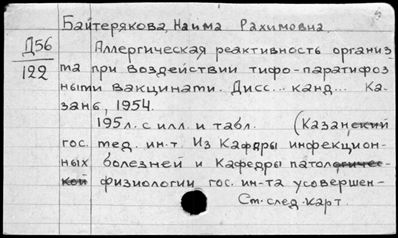 Байтерякова, Наима Рахимовна.
Д56
122
Аллергическая реактивность организ-
ма при воздействии тифо-паратифоз
ными вакцинами. Дисс... канд... Ка-
зань, 1954.
195л. с илл. и табл. (Казанский
гос. мед. ин-т. Из Кафдры инфекцион-
ных болезней и Кафедры патологичес-
кой физиологии гос. ин-та усовершен-
См. след. карт.